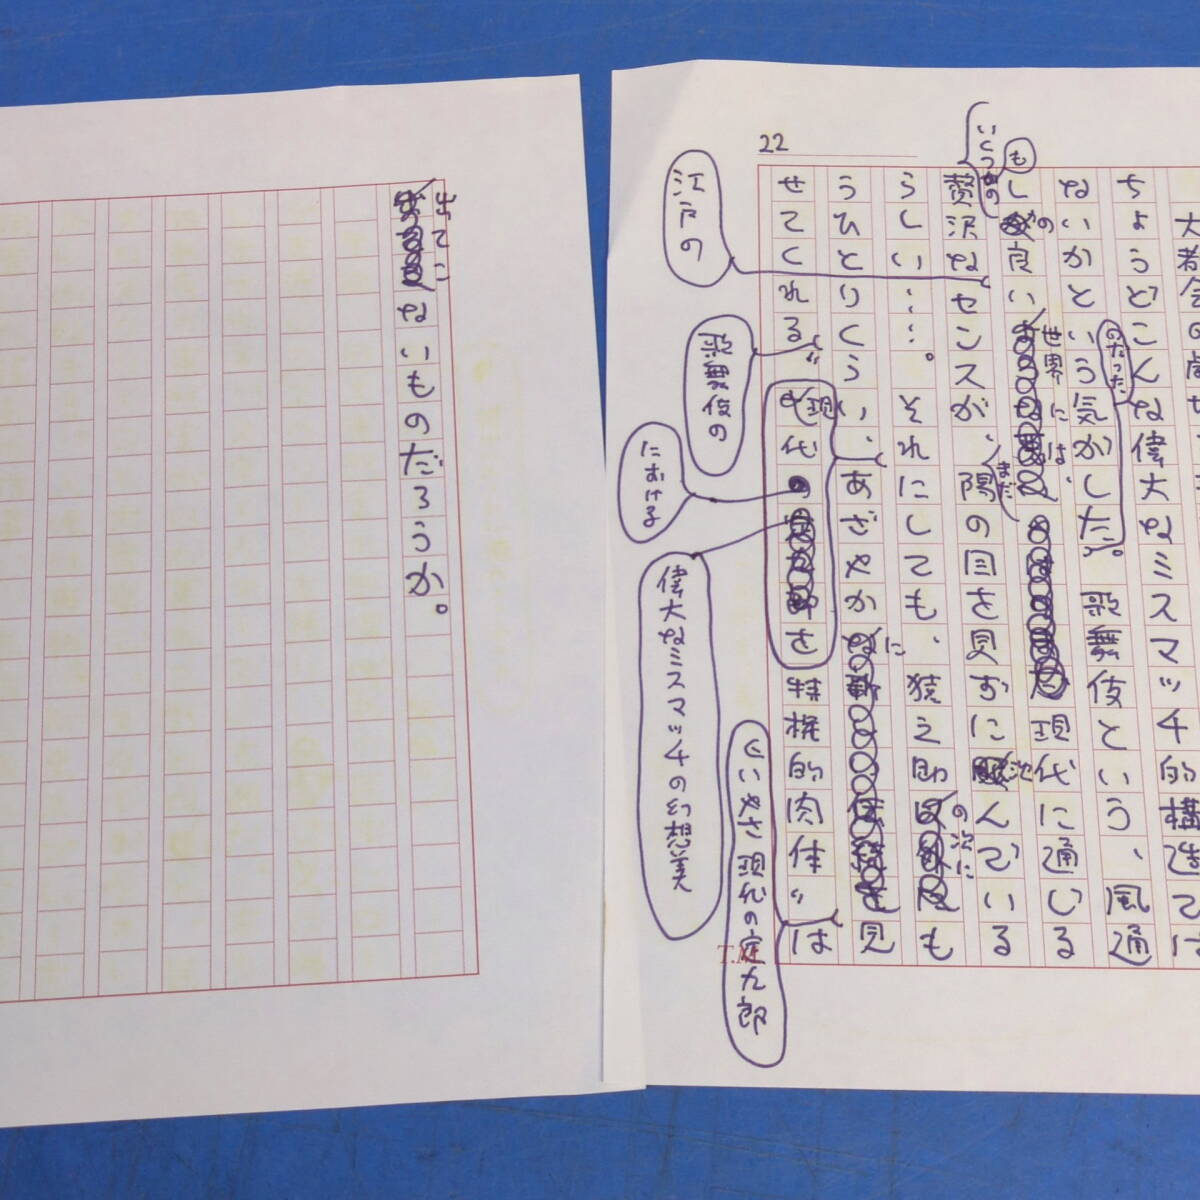 22
大都会の
ちょうどこんな偉大なミスマッチ的構造では
ないかという気がした。歌舞伎という、風通
のだったか
しの良い世界には、現代に通じる
も
いくつもの
贅沢なセンスが、陽の目を見ずに沈んでいる
まだ
らしい……。それにしても、猿之助の次にも
うひとりくらい、あざやかに見
せてくれる〝現代を特権的肉体〟は
江戸の
歌舞伎の
における
偉大なミスマッチの幻想美
いやさ現代の定九郎
T.M
出てこ
ないものだろうか。